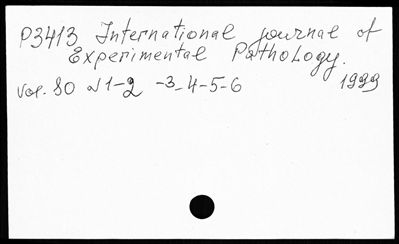 P3413 International journal of
Experimental Pathology.
Vol. 80 N 1-2 -3-4-5-6 1999